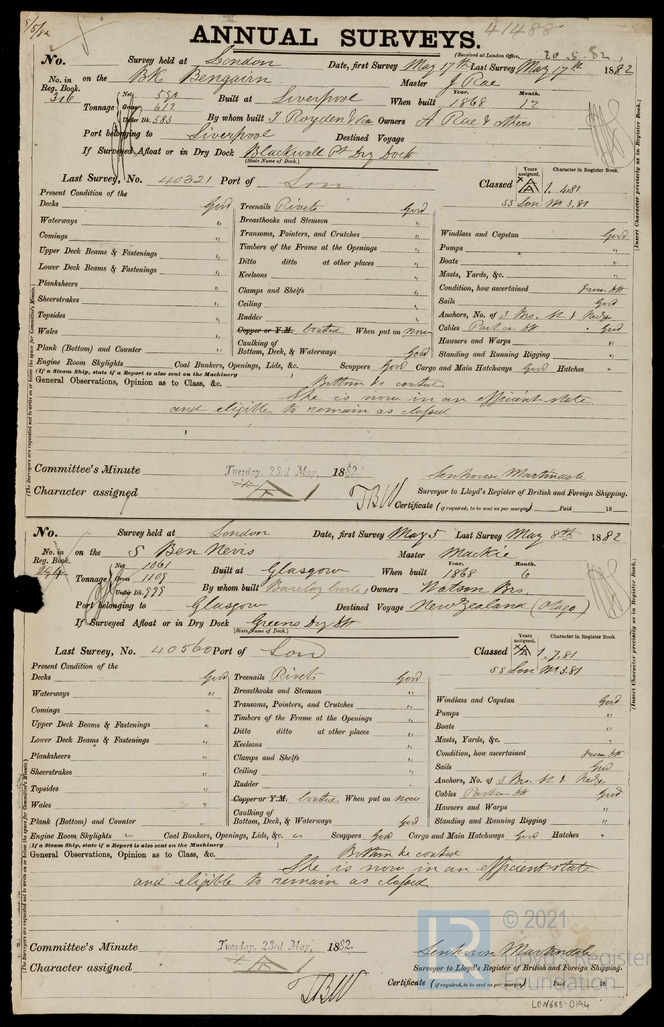 41488
ANNUAL SURVEYS.
(Received at London Office, 20.5.82.
No. Survey held at London Date, first Survey May 17th Last Survey May 17th 1882
No. in on the BK Bengairn Master J Rae
Reg. Book. Net 590 Year. Month.
316 Tonnage Gross 612 Built at Liverpool When built 1868 12
Under Dk. 583 By whom built T Royden & Son Owners A Rae & others
Port belonging to Liverpool Destined Voyage
If Surveyed Afloat or in Dry Dock Blackwall Pt Dry Dock
(State Name of Dock.)
Last Survey, No. 40321 Port of Lon Classed A 1. 4.81
Years assigned. Character in Register Book.
SS Lon No 3.81
(Insert Character precisely as in Register Book.)
Present Condition of the
Decks Good Treenails Rivets Good
Waterways " Breasthooks and Stemson " Windlass and Capstan Good
Comings " Transoms, Pointers, and Crutches " Pumps "
Upper Deck Beams & Fastenings " Timbers of the Frame at the Openings " Boats "
Lower Deck Beams & Fastenings " Ditto ditto at other places " Masts, Yards, &c. "
Planksheers " Keelsons " Condition, how ascertained from dk
Sheerstrakes " Clamps and Shelfs " Sails Good
Topsides " Ceiling " Anchors, No. of 3 Brs. St & Kedge
Wales " Rudder " Cables Good
Plank (Bottom) and Counter " Copper or Y.M. Coated When put on now Hawsers and Warps "
Caulking of Bottom, Deck, & Waterways Good Standing and Running Rigging "
Engine Room Skylights Coal Bunkers, Openings, Lids, &c. Scuppers Good Cargo and Main Hatchways Good Hatches "
(If a Steam Ship, state if a Report is also sent on the Machinery )
General Observations, Opinion as to Class, &c. Bottom re coated
She is now in an efficient state
and eligible to remain as classed
(The Surveyors are requested not to write on or below the space for Committee's Minute.)
Committee's Minute Tuesday, 23rd May, 1882. Senhouse Martindale
Character assigned A 1 TBW Surveyor to Lloyd's Register of British and Foreign Shipping.
Certificate (if required, to be sent as per margin) Paid 18
No. Survey held at London Date, first Survey May 5 Last Survey May 8th 1882
No. in on the S Ben Nevis Master Mackie
Reg. Book. Net 1061 Year. Month.
294 Tonnage Gross 1109 Built at Glasgow When built 1868 6
Under Dk. 979 By whom built Barclay Curle & Co Owners Watson Brs.
Port belonging to Glasgow Destined Voyage New Zealand (Otago)
If Surveyed Afloat or in Dry Dock Greens Dry Dk
(State Name of Dock.)
Last Survey, No. 40560 Port of Lon Classed A 1. 7.81
Years assigned. Character in Register Book.
SS Lon No 3.81
(Insert Character precisely as in Register Book.)
Present Condition of the
Decks Good Treenails Rivets Good
Waterways " Breasthooks and Stemson " Windlass and Capstan Good
Comings " Transoms, Pointers, and Crutches " Pumps "
Upper Deck Beams & Fastenings " Timbers of the Frame at the Openings " Boats "
Lower Deck Beams & Fastenings " Ditto ditto at other places " Masts, Yards, &c. "
Planksheers " Keelsons " Condition, how ascertained from dk
Sheerstrakes " Clamps and Shelfs " Sails Good
Topsides " Ceiling " Anchors, No. of 3 Brs. St & Kedge
Wales " Rudder " Cables Good
Plank (Bottom) and Counter " Copper or Y.M. Coated When put on now Hawsers and Warps "
Caulking of Bottom, Deck, & Waterways Good Standing and Running Rigging "
Engine Room Skylights " Coal Bunkers, Openings, Lids, &c. " Scuppers Good Cargo and Main Hatchways Good Hatches "
(If a Steam Ship, state if a Report is also sent on the Machinery )
General Observations, Opinion as to Class, &c. Bottom re coated
She is now in an efficient state
and eligible to remain as classed
(The Surveyors are requested not to write on or below the space for Committee's Minute.)
Committee's Minute Tuesday, 23rd May, 1882. Senhouse Martindale
Character assigned A 1 TBW Surveyor to Lloyd's Register of British and Foreign Shipping.
Certificate (if required, to be sent as per margin) Paid 18
LR © 2021
Lloyd's Register
Foundation
LON688-0194